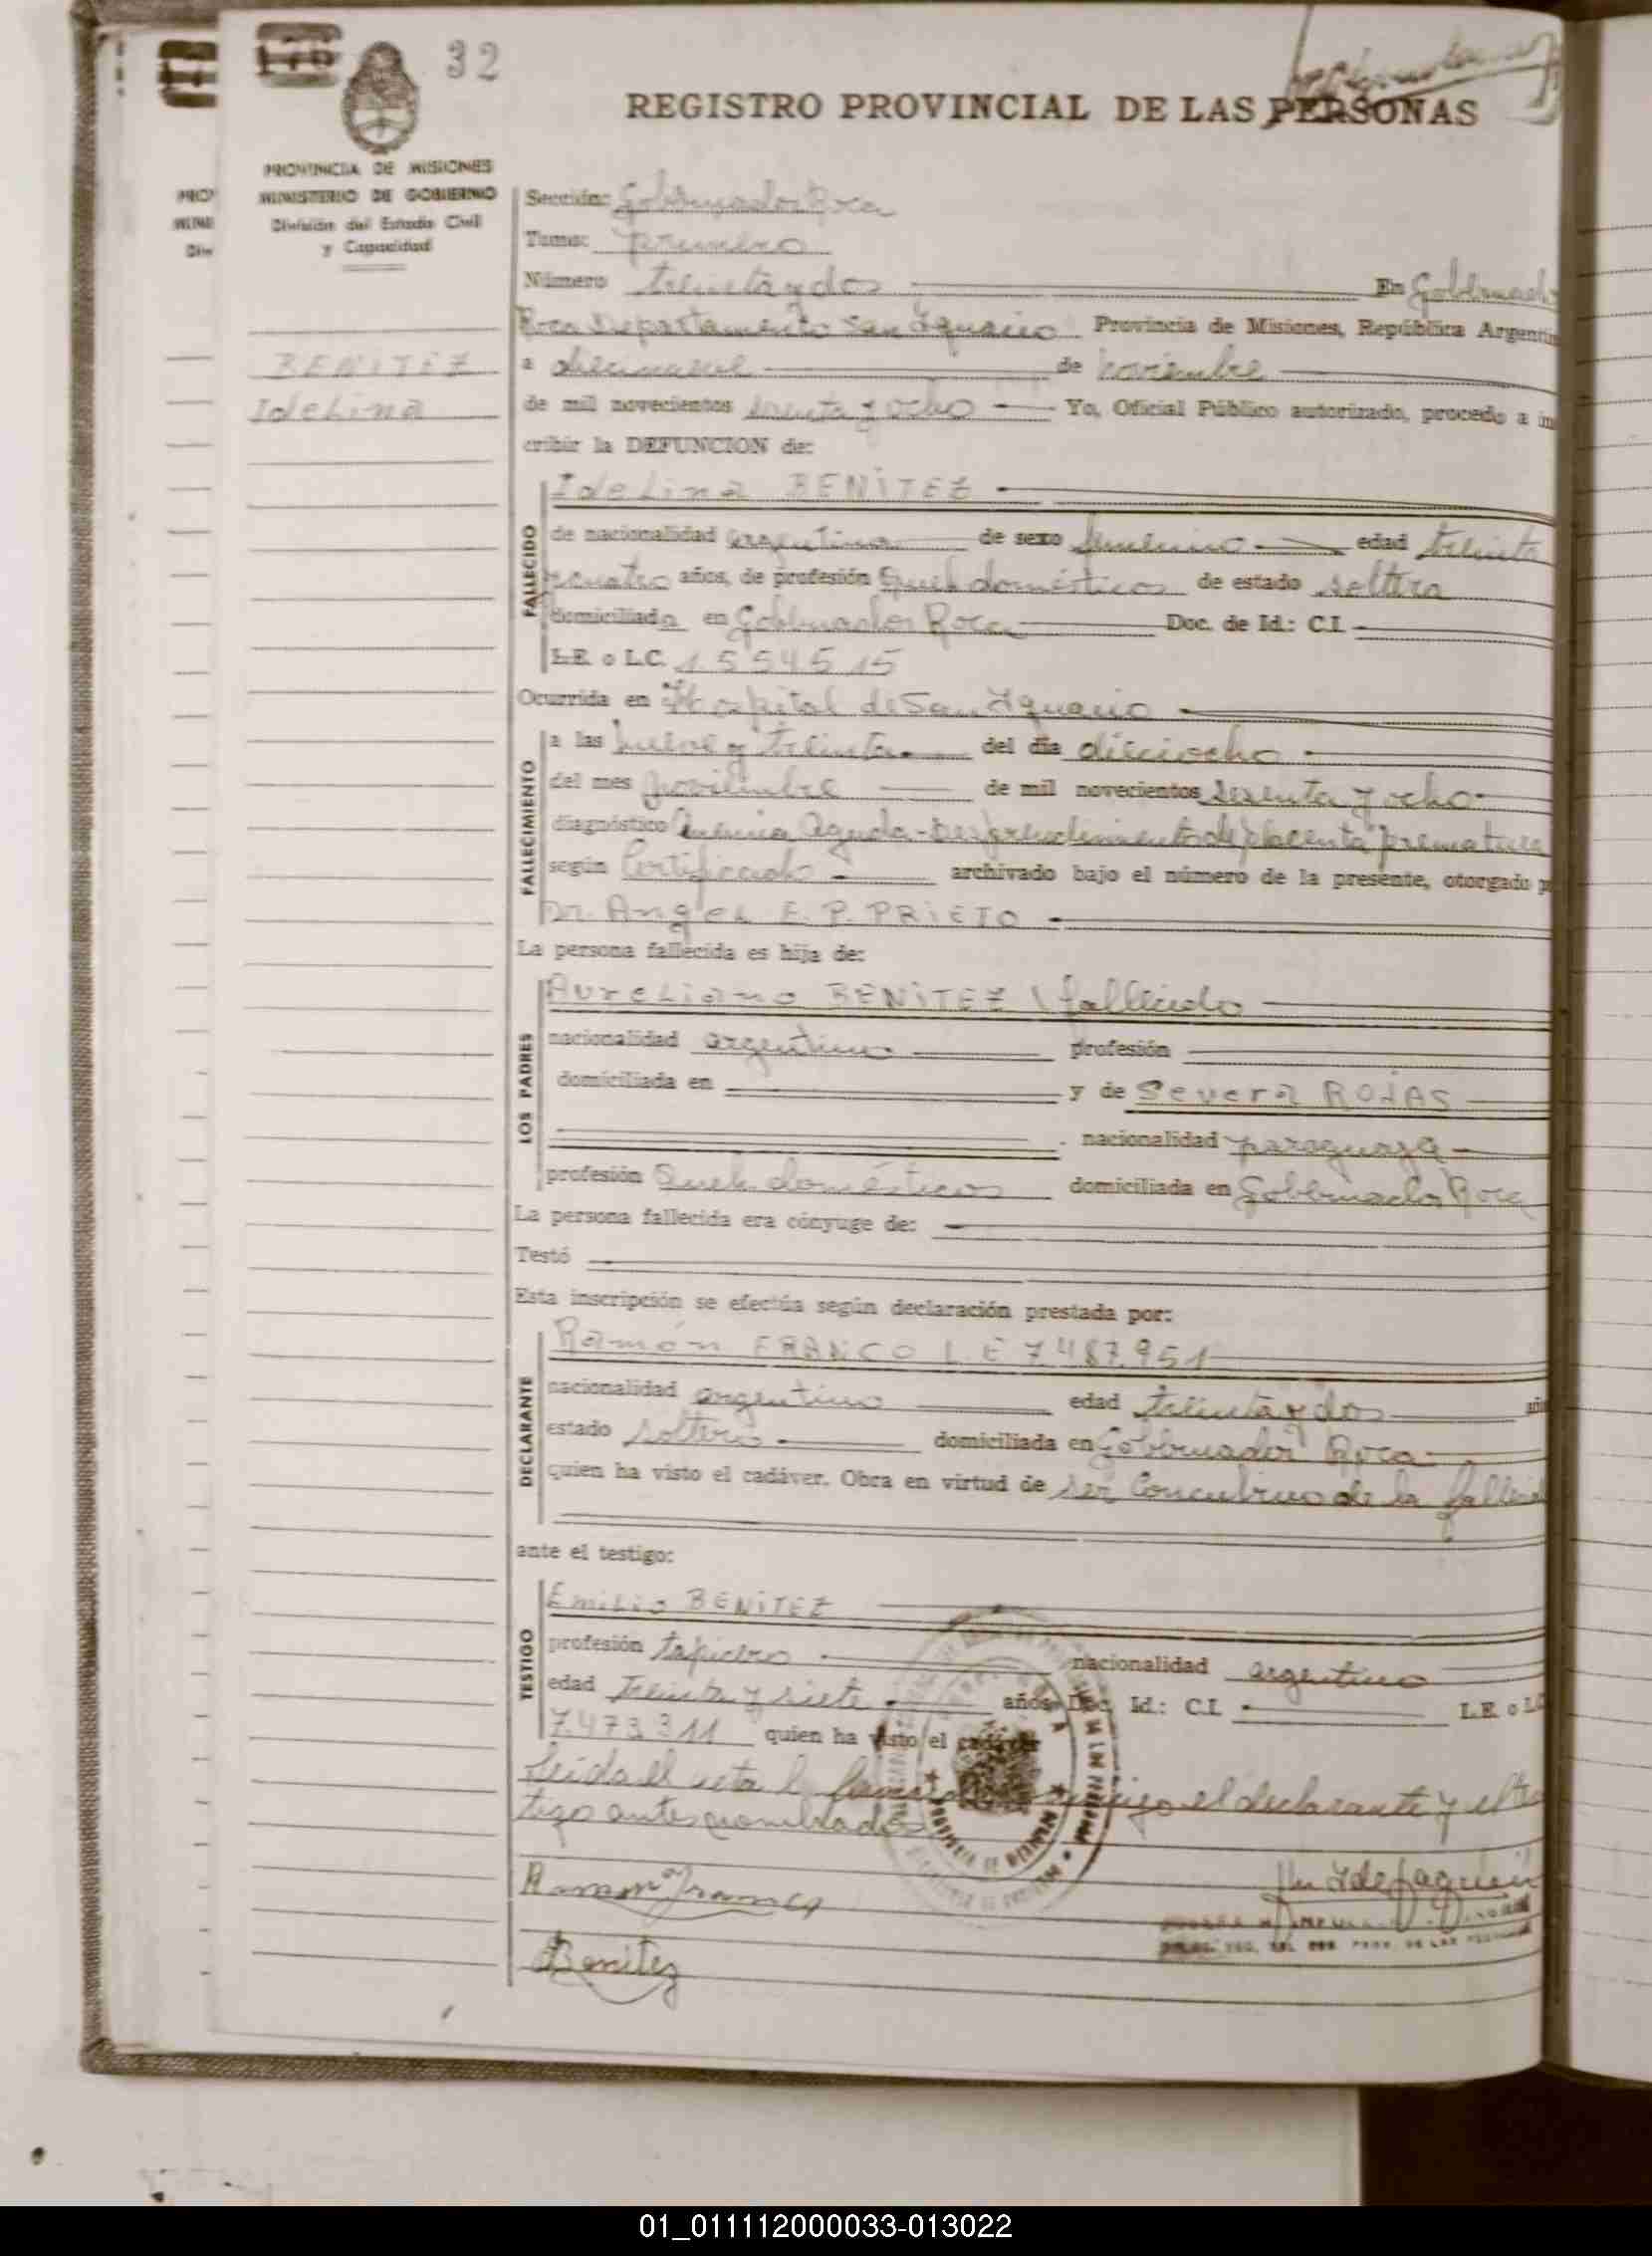 32
REGISTRO PROVINCIAL DE LAS PERSONAS
PROVINCIA DE MISIONES
MINISTERIO DE GOBIERNO
División del Estado Civil
y Capacidad
BENITEZ
IdeLina
Sección: Gobernador Roca
Tomo: primero
Número treinta y dos En Gobernador
Roca Departamento San Ignacio Provincia de Misiones, República Argentin
a diecinueve de noviembre
de mil novecientos sesenta y ocho Yo, Oficial Público autorizado, procedo a in
cribir la DEFUNCION de:
FALLECIDO
IdeLina BENITEZ
de nacionalidad argentina de sexo femenino edad treinta
y cuatro años, de profesión Queh domésticos de estado soltera
domiciliada en Gobernador Roca Doc. de Id.: C.I.
L.E. o L.C. 1.554515
Ocurrida en Hospital de San Ignacio
FALLECIMIENTO
a las nueve y treinta del día dieciocho
del mes noviembre de mil novecientos sesenta y ocho
diagnóstico Anemia Aguda - Desprendimiento de placenta prematura
según Certificado archivado bajo el número de la presente, otorgado p
Dr. AngeL E. P. PRIETO
La persona fallecida es hija de:
LOS PADRES
AureLiano BENITEZ fallecido
nacionalidad argentino profesión
domiciliada en y de Severa ROJAS
nacionalidad paraguaya
profesión Queh. domésticos domiciliada en Gobernador Roca
La persona fallecida era cónyuge de:
Testó
Esta inscripción se efectúa según declaración prestada por:
DECLARANTE
Ramón FRANCO L.E 7.487.951
nacionalidad argentino edad treinta y dos añ
estado soltero domiciliada en Gobernador Roca
quien ha visto el cadáver. Obra en virtud de ser Concubino de la fallecid
ante el testigo:
TESTIGO
EmiLio BENITEZ
profesión tapicero nacionalidad argentino
edad Treinta y siete años Doc. Id.: C.I. L.E. o L.C
7.473.311 quien ha visto el cadáver
Leida el acta la conmigo el declarante y el tes
tigo antes nombrados
Ramon Franco
Benitez
01_011112000033-013022